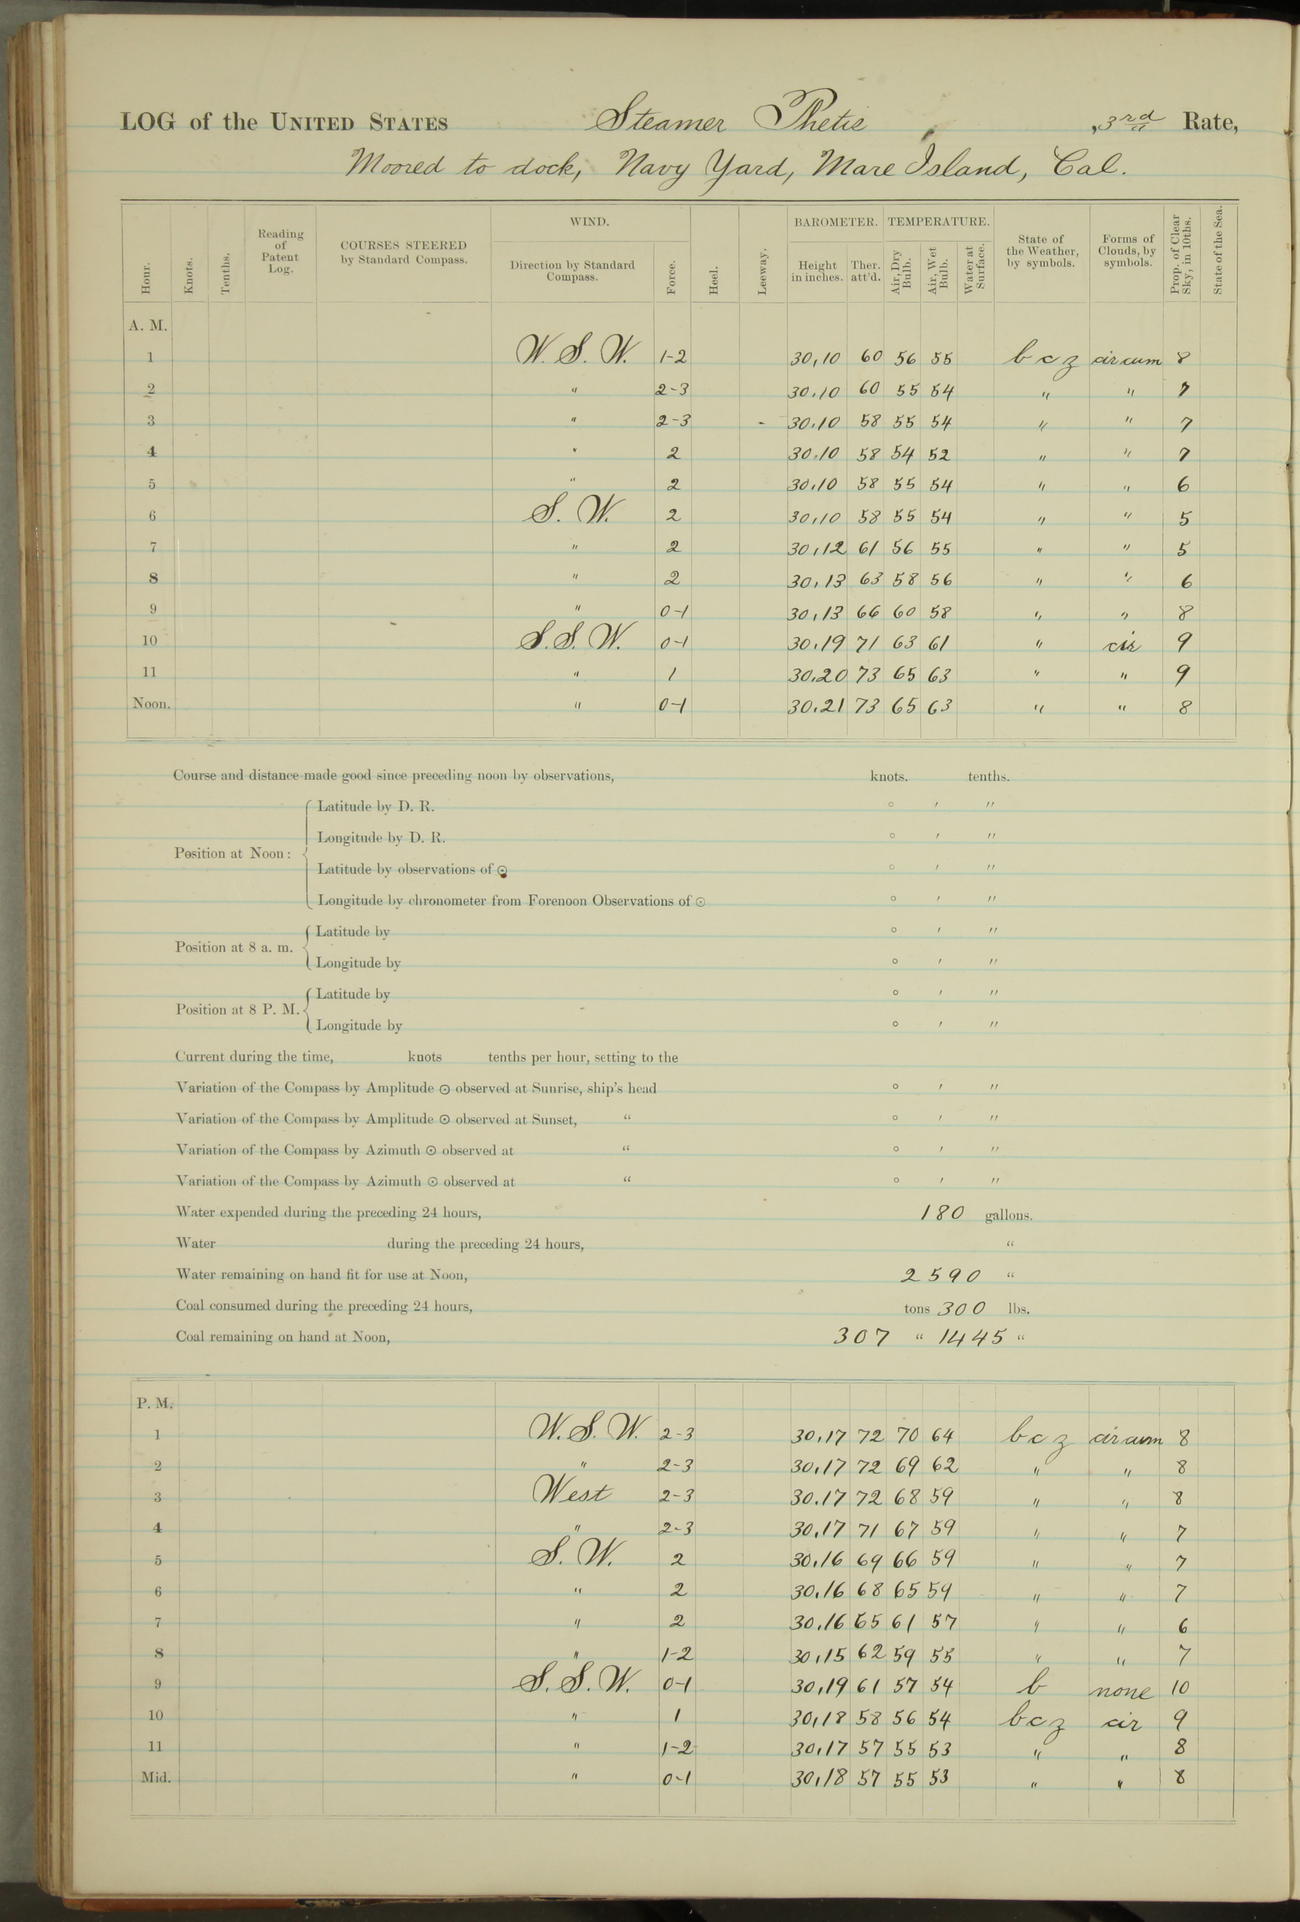 LOG of the UNITED STATES Steamer Thetis, 3rd Rate,
Moored to dock, Navy Yard, Mare Island, Cal.
Hour. Knots. Tenths. Reading of Patent Log. COURSES STEERED by Standard Compass. WIND. Direction by Standard Compass. Force. Heel. Leeway. BAROMETER. Height in inches. Ther. att'd. TEMPERATURE. Air, Dry Bulb. Air, Wet Bulb. Water at Surface. State of the Weather, by symbols. Forms of Clouds, by symbols. Prop. of Clear Sky, in 10ths. State of the Sea.
A. M.
1 W. S. W. 1-2 30,10 60 56 55 b c z cir cum 8
2 " 2-3 30.10 60 55 54 " " 7
3 " 2-3 30.10 58 55 54 " " 7
4 " 2 30.10 58 54 52 " " 7
5 " 2 30.10 58 55 54 " " 6
6 S. W. 2 30,10 58 55 54 " " 5
7 " 2 30,12 61 56 55 " " 5
8 " 2 30,13 63 58 56 " " 6
9 " 0-1 30,13 66 60 58 " " 8
10 S. S. W. 0-1 30,19 71 63 61 " cir 9
11 " 1 30.20 73 65 63 " " 9
Noon. " 0-1 30.21 73 65 63 " " 8
Course and distance made good since preceding noon by observations, knots. tenths.
Position at Noon: Latitude by D. R. ° ′ ″
Longitude by D. R. ° ′ ″
Latitude by observations of ⊙ ° ′ ″
Longitude by chronometer from Forenoon Observations of ⊙ ° ′ ″
Position at 8 a. m. Latitude by ° ′ ″
Longitude by ° ′ ″
Position at 8 P. M. Latitude by ° ′ ″
Longitude by ° ′ ″
Current during the time, knots tenths per hour, setting to the
Variation of the Compass by Amplitude ⊙ observed at Sunrise, ship's head ° ′ ″
Variation of the Compass by Amplitude ⊙ observed at Sunset, " ° ′ ″
Variation of the Compass by Azimuth ⊙ observed at " ° ′ ″
Variation of the Compass by Azimuth ⊙ observed at " ° ′ ″
Water expended during the preceding 24 hours, 180 gallons.
Water during the preceding 24 hours, "
Water remaining on hand fit for use at Noon, 2590 "
Coal consumed during the preceding 24 hours, tons 300 lbs.
Coal remaining on hand at Noon, 307 " 1445 "
P. M.
1 W. S. W. 2-3 30,17 72 70 64 b c z cir cum 8
2 " 2-3 30,17 72 69 62 " " 8
3 West 2-3 30.17 72 68 59 " " 8
4 " 2-3 30,17 71 67 59 " " 7
5 S. W. 2 30.16 69 66 59 " " 7
6 " 2 30.16 68 65 59 " " 7
7 " 2 30.16 65 61 57 " " 6
8 " 1-2 30,15 62 59 55 " " 7
9 S. S. W. 0-1 30,19 61 57 54 b none 10
10 " 1 30,18 58 56 54 b c z cir 9
11 " 1-2 30,17 57 55 53 " " 8
Mid. " 0-1 30,18 57 55 53 " " 8